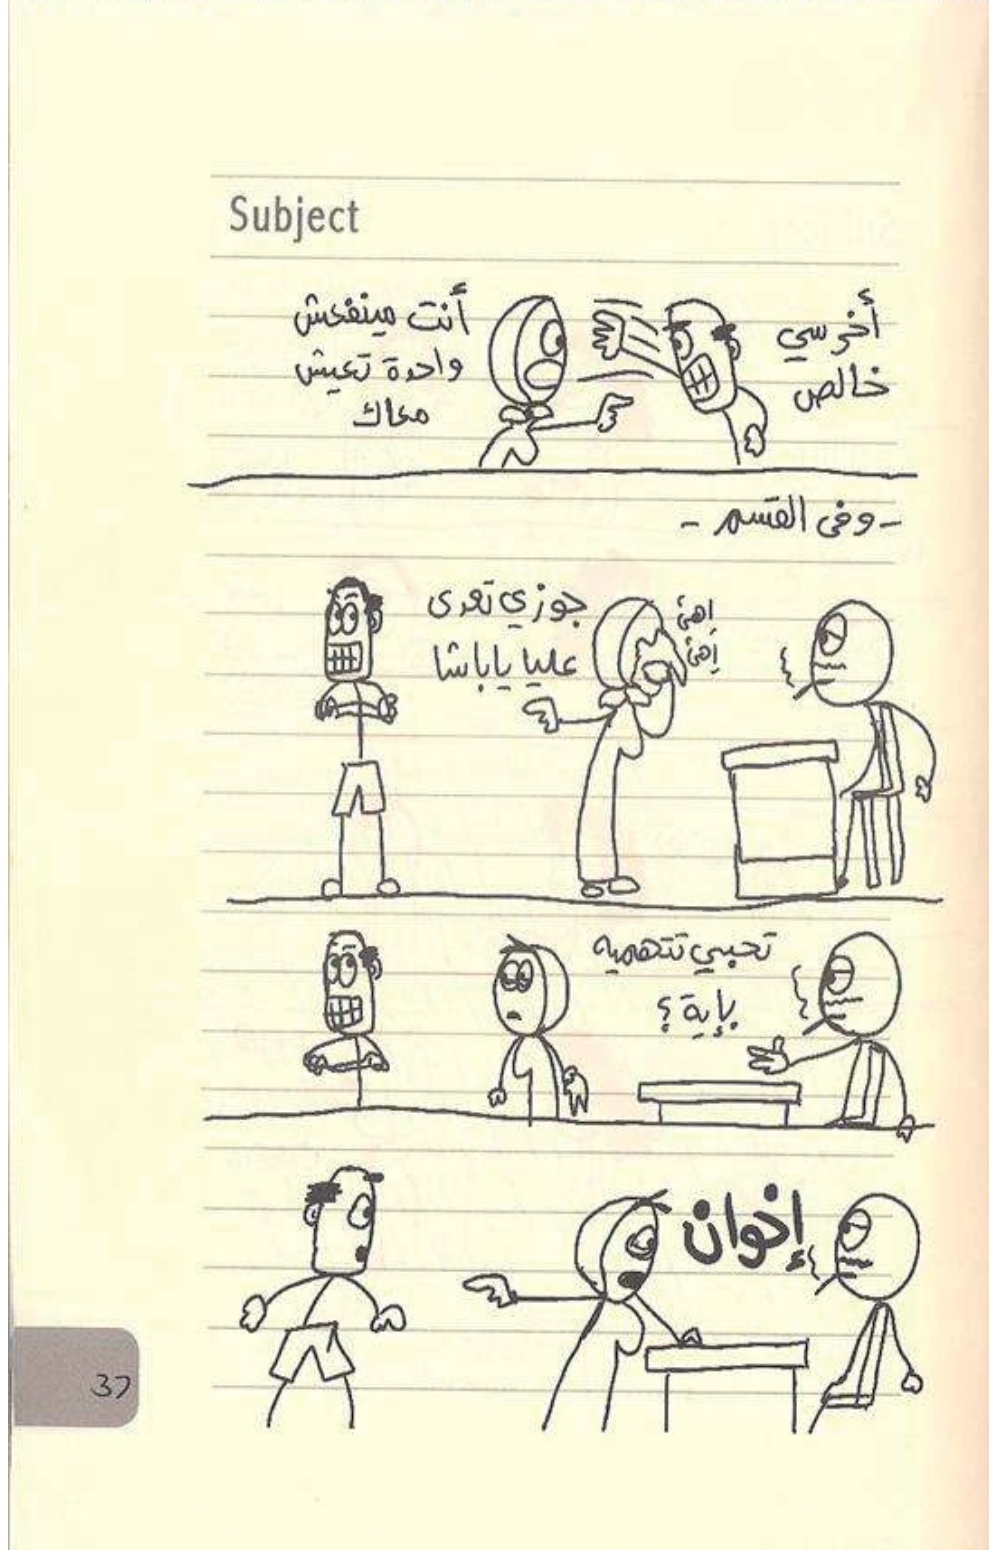 Subject
أخرسي
خالص
أنت مينفعش
واحدة تعيش
معاك
- وفى القسم -
اهئ
إهئ
جوزي تعدى
عليا ياباشا
تحبي تتهميه
بإية ؟
إخوان
37